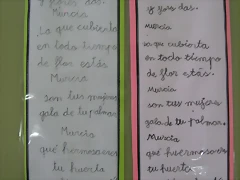 y flores das.
Murcia
La que cubierta
en todo tiempo
de flor estás
Murcia
son tus mujeres
gala de tu palmar.
Murcia
qué hermosa eres
tu huerta
y flores das.
Murcia
La que cubierta
en todo tiempo
de flor estás.
Murcia
son tus mujeres
gala de tu palmar.
Murcia
qué huermosa
tu huerta